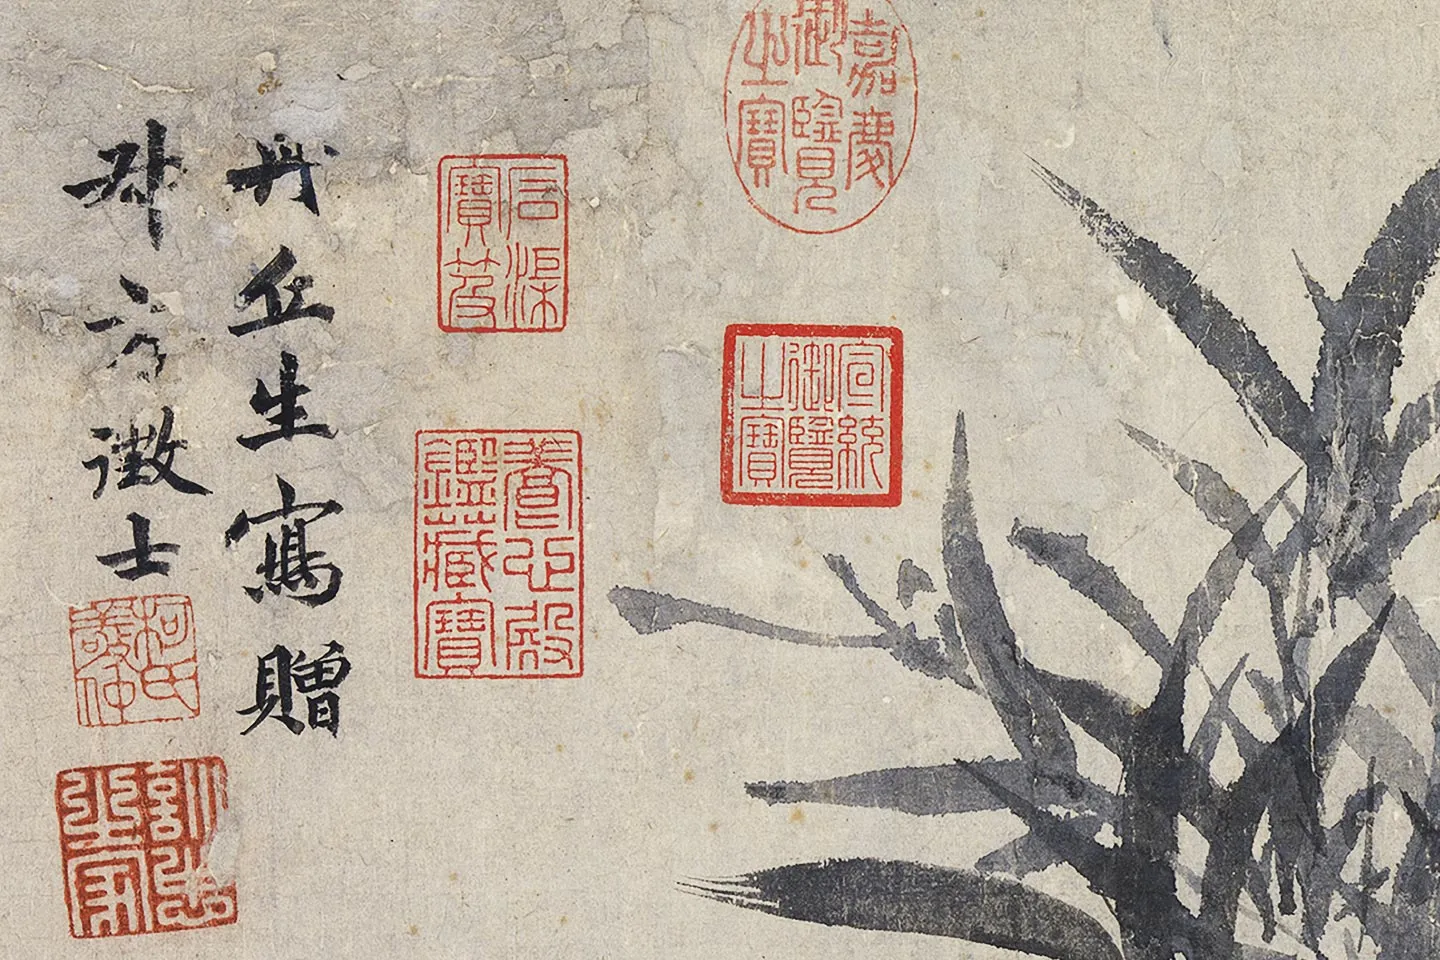 嘉慶
御覽
之寶
宣統
御覽
之寶
石渠
寶笈
養心殿
鑑藏寶
丹丘生寫贈
方徵士
柯氏
敬仲
訓忠
之家